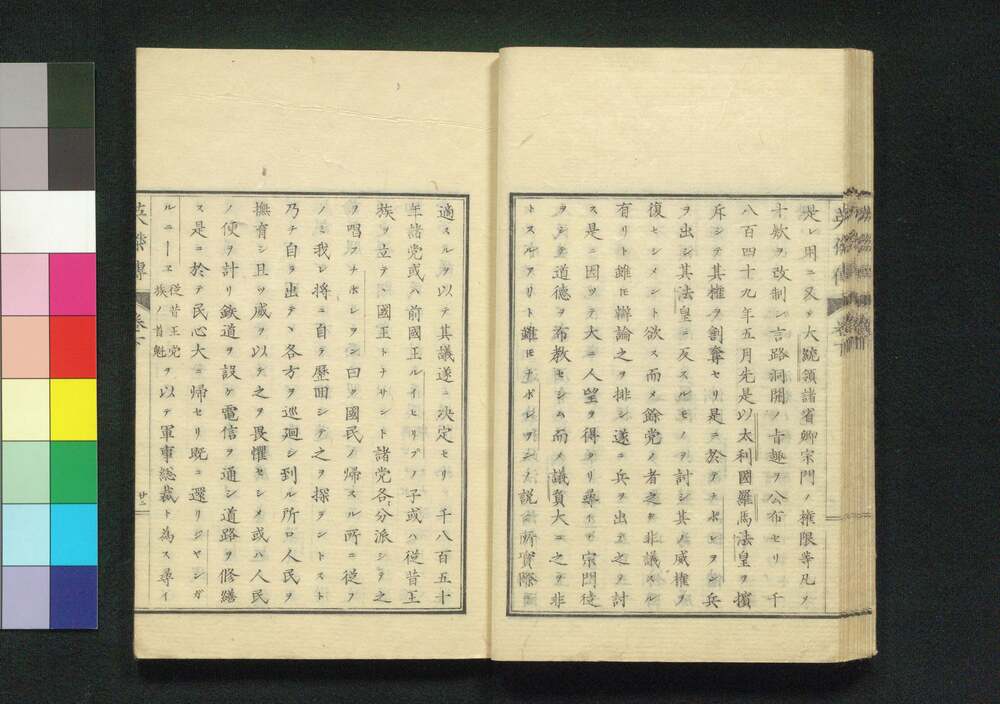 是レ用ニ及ヲ大統領諸省卿宗門ノ権限等凡ヲ
十款ヲ改制シ言路洞開ノ旨趣ヲ公布セリ 千
八百四十九年五月先是以太利國羅馬法皇ヲ擯
斥シテ其権ヲ割奪セリ是ニ於テナポレヲン兵
ヲ出シ其法皇ニ反スルモノヲ討シ其ノ威権ヲ
復セシメント欲ス而メ餘党ノ者之ヲ非議スル
有リト雖𪜈辯論之ヲ排シ遂ニ兵ヲ出テ之ヲ討
ス是ニ因ヲ大ニ人望ヲ得タリ尋テ宗門徒
ヲシテ道徳ヲ布教セシム而メ議員大ニ之ヲ非
トスルアリト雖𪜈ナポレヲンノ説實際ニ
適スルヲ以テ其議遂ニ決定セリ 千八百五十
年諸党或ハ前國王ルイヒリプノ子或ハ従昔王
族ヲ立テ國王トナサント諸党各分派シテ之
ヲ唱フナポレヲン曰ク國民ノ帰スル所ニ従フ
ノミ我レ将ニ自ラ歴回シテ之ヲ探ラントスト
乃チ自ラ出テヽ各方ヲ巡廻シ到ル所ロ人民ヲ
撫育シ且ツ威ヲ以テ之ヲ畏懼セシメ或ハ人民
ノ便ヲ計リ鉄道ヲ設ケ電信ヲ通シ道路ヲ修繕
ス是ニ於テ民心大ニ帰セリ既ニ還リジヤンガ
ルニーヱ従昔王党族ノ首魁ヲ以テ軍事総裁ト為ス尋イ
英傑傳 巻下 廿二